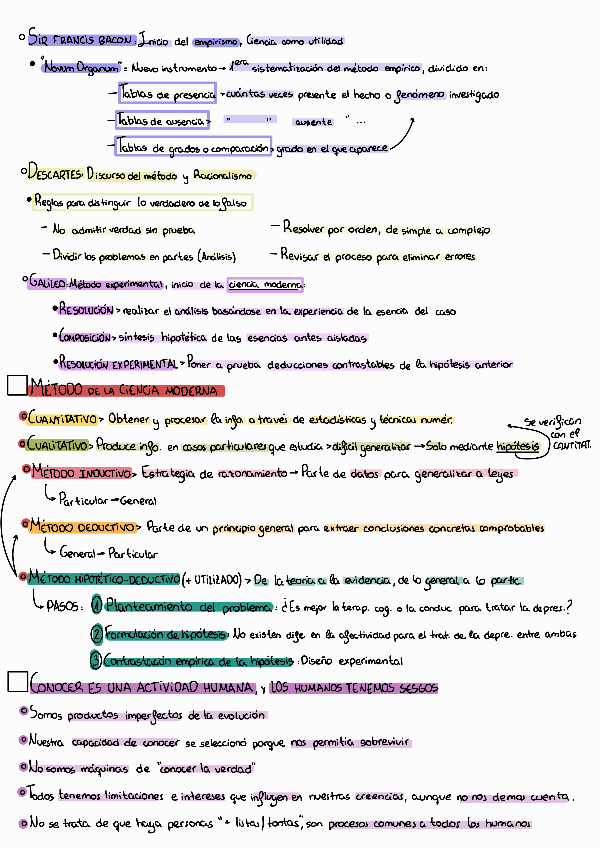 SIR FRANCIS BACON: Inicio del empirismo, Ciencia como utilidad
"Novum Organum" = Nuevo instrumento → 1era sistematización del método empírico, dividido en:
— Tablas de presencia > cuántas veces presente el hecho o fenómeno investigado
— Tablas de ausencia > " " ausente " ...
— Tablas de grados o comparación > grado en el que aparece
DESCARTES: Discurso del método y Racionalismo
Reglas para distinguir lo verdadero de lo falso
— No admitir verdad sin prueba — Resolver por orden, de simple a complejo
— Dividir los problemas en partes (Análisis) — Revisar el proceso para eliminar errores
GALILEO: Método experimental, inicio de la ciencia moderna:
RESOLUCIÓN > realizar el análisis basándose en la experiencia de la esencia del caso
COMPOSICIÓN > síntesis hipotética de las esencias antes aisladas
RESOLUCIÓN EXPERIMENTAL > Poner a prueba deducciones contrastables de la hipótesis anterior
MÉTODO DE LA CIENCIA MODERNA
CUANTITATIVO > Obtener y procesar la info. a través de estadísticas y técnicas numér.
se verifican con el CANTITAT.
CUALITATIVO > Produce info. en casos particulares que estudia > difícil generalizar → Solo mediante hipótesis
MÉTODO INDUCTIVO > Estrategia de razonamiento → Parte de datos para generalizar a leyes
Particular → General
MÉTODO DEDUCTIVO > Parte de un principio general para extraer conclusiones concretas comprobables
General → Particular
MÉTODO HIPOTÉTICO-DEDUCTIVO (+ UTILIZADO) > De la teoría a la evidencia, de lo general a lo partic.
PASOS: 1 Planteamiento del problema: ¿Es mejor la terap. cog. o la conduc. para tratar la depres.?
2 Formulación de hipótesis: No existen dife. en la efectividad para el trat. de la depre. entre ambas
3 Contrastación empírica de la hipótesis: Diseño experimental
CONOCER ES UNA ACTIVIDAD HUMANA, y LOS HUMANOS TENEMOS SESGOS
Somos productos imperfectos de la evolución
Nuestra capacidad de conocer se seleccionó porque nos permitía sobrevivir
No somos máquinas de "conocer la verdad"
Todos tenemos limitaciones e intereses que influyen en nuestras creencias, aunque no nos demos cuenta.
No se trata de que haya personas "+ listas/tontas", son procesos comunes a todos los humanos